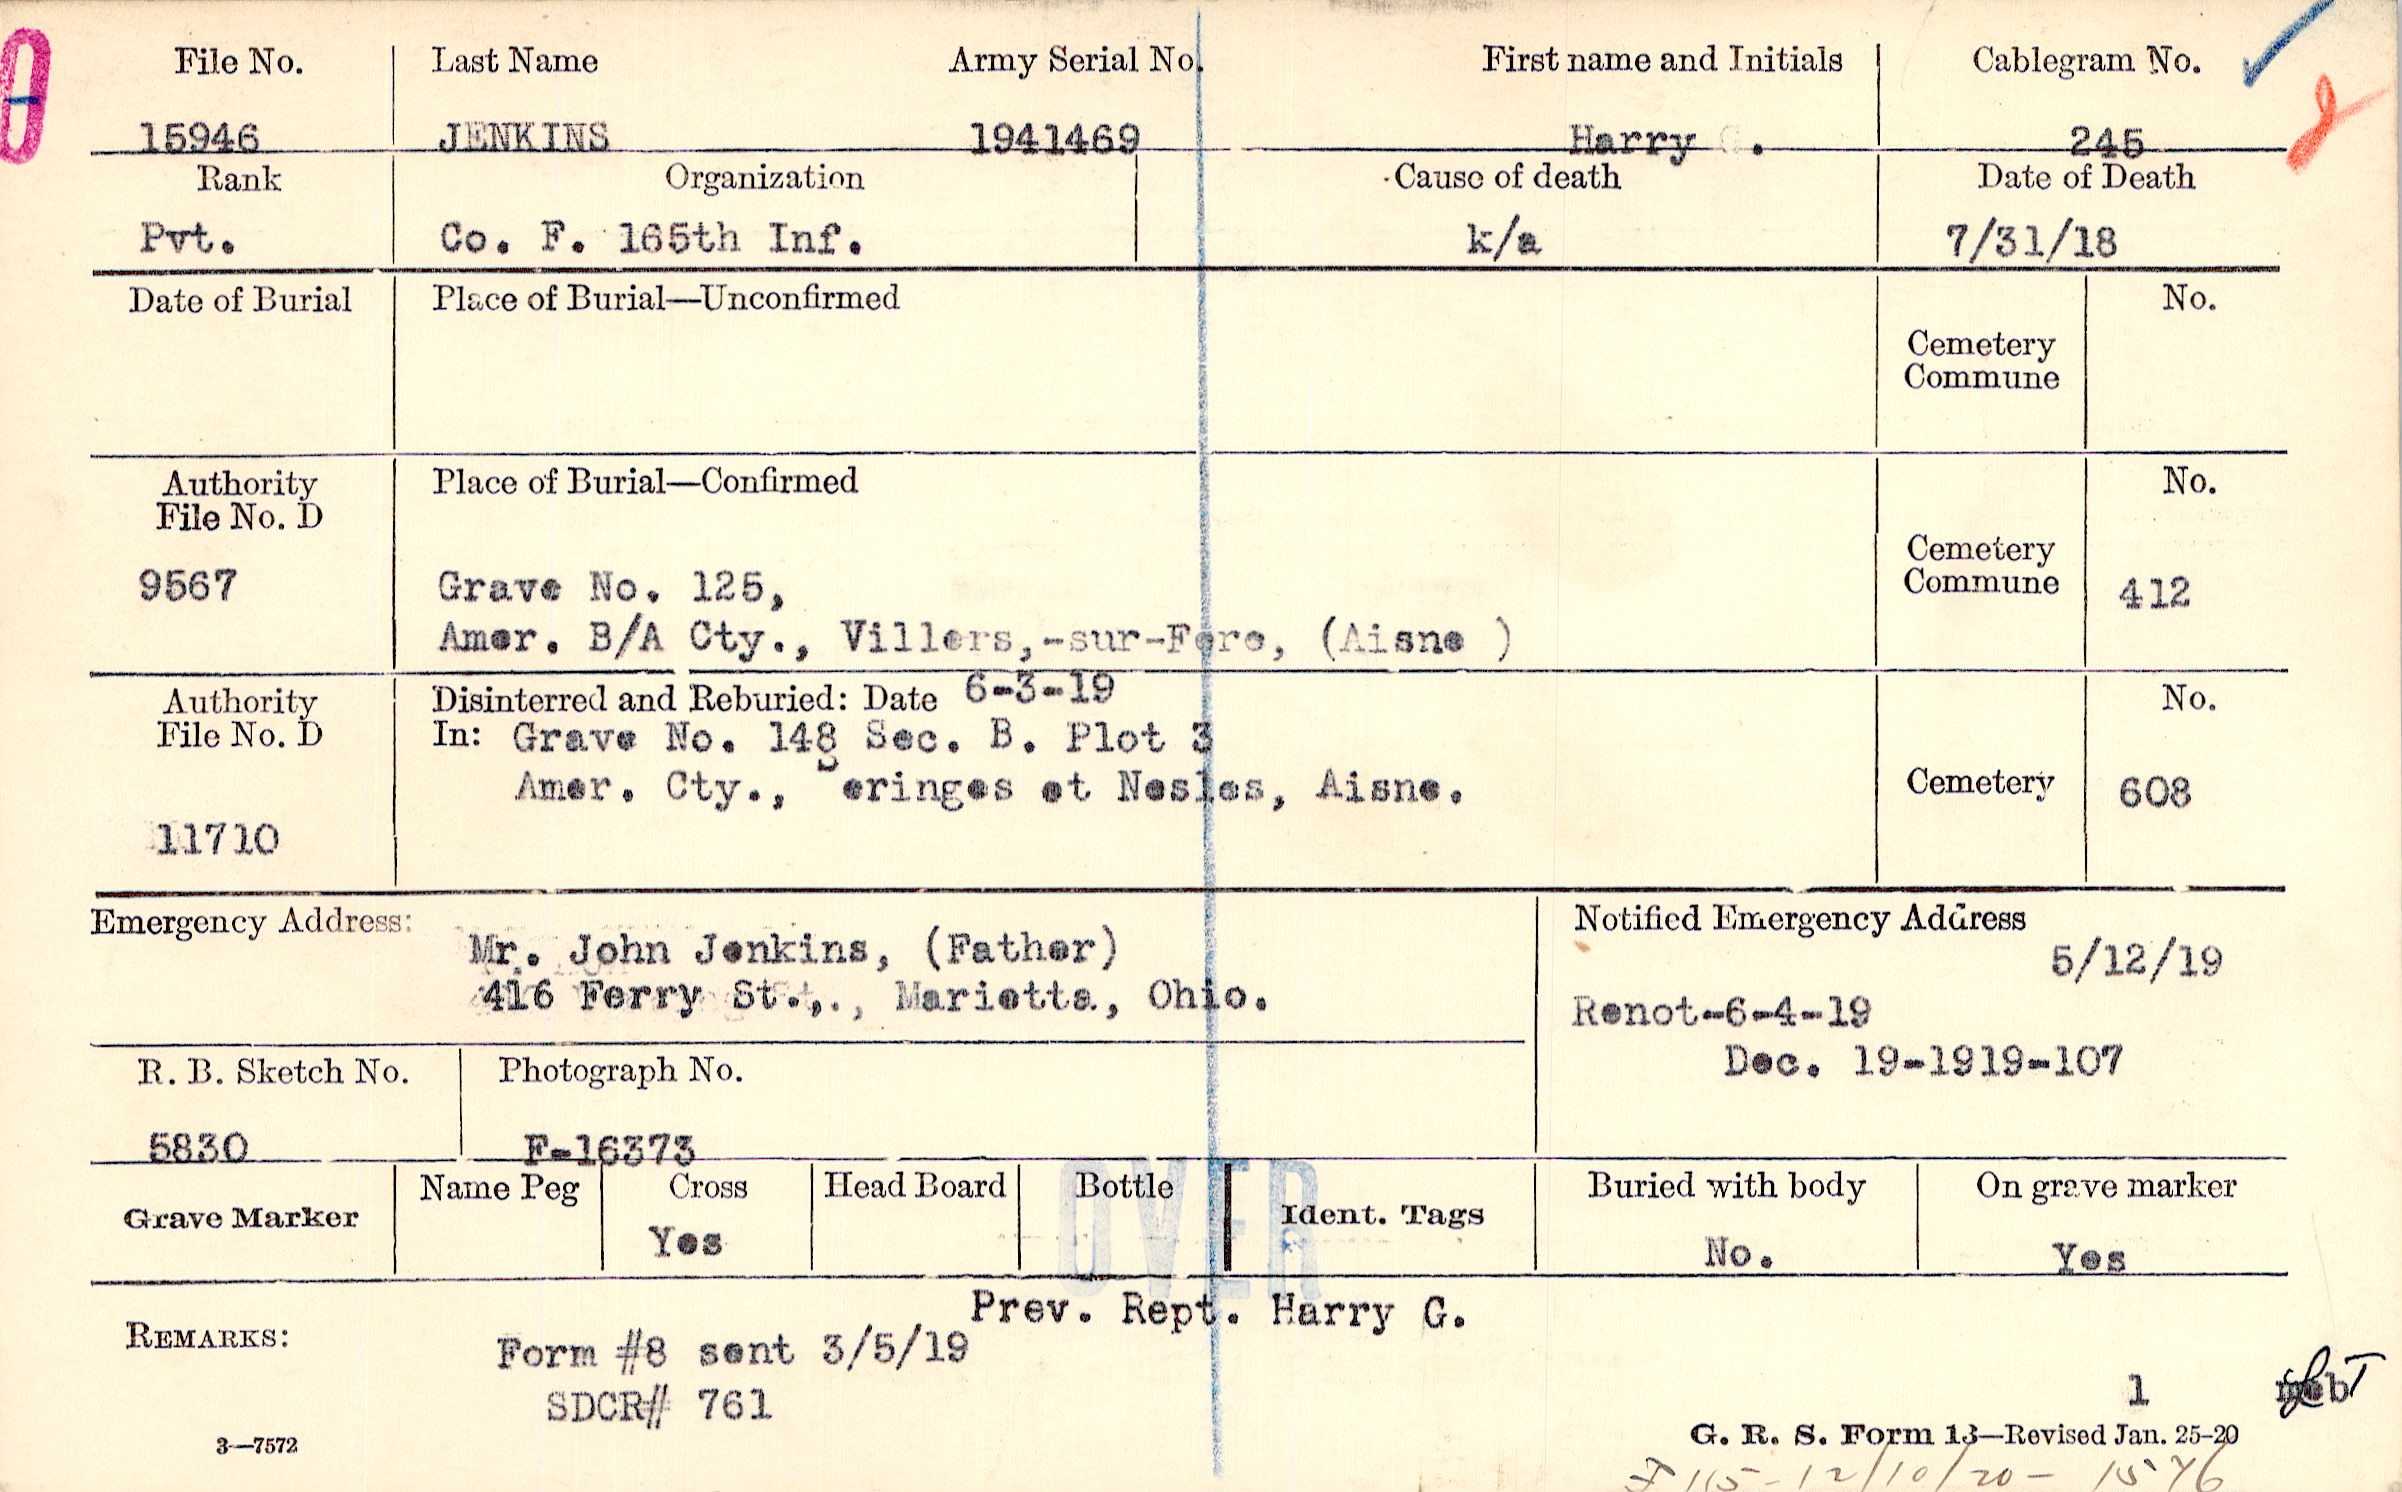 File No. Last Name Army Serial No. First name and Initials Cablegram No.
15946 JENKINS 1941469 Harry . 245
Rank Organization Cause of death Date of Death
Pvt. Co. F. 165th Inf. k/a 7/31/18
Date of Burial Place of Burial—Unconfirmed No.
Cemetery
Commune
Authority Place of Burial—Confirmed No.
File No. D
Cemetery
9567 Grave No. 125, Commune 412
Amer. B/A Cty., Villers,-sur-Fere, (Aisne )
Authority Disinterred and Reburied: Date 6-3-19 No.
File No. D In: Grave No. 148 Sec. B. Plot 3
Amer. Cty., Seringes et Nesles, Aisne. Cemetery 608
11710
Emergency Address: Notified Emergency Address
Mr. John Jenkins, (Father) 5/12/19
416 Ferry St.,., Marietta, Ohio.
Renot-6-4-19
R. B. Sketch No. Photograph No. Dec. 19-1919-107
5830 F-16373
Grave Marker Name Peg Cross Head Board Bottle Ident. Tags Buried with body On grave marker
Yes No. Yes
OVER
Prev. Rept. Harry G.
REMARKS: Form #8 sent 3/5/19
SDCR# 761
1
3—7572 G. R. S. Form 13—Revised Jan. 25-20
12/10/20 - 1576